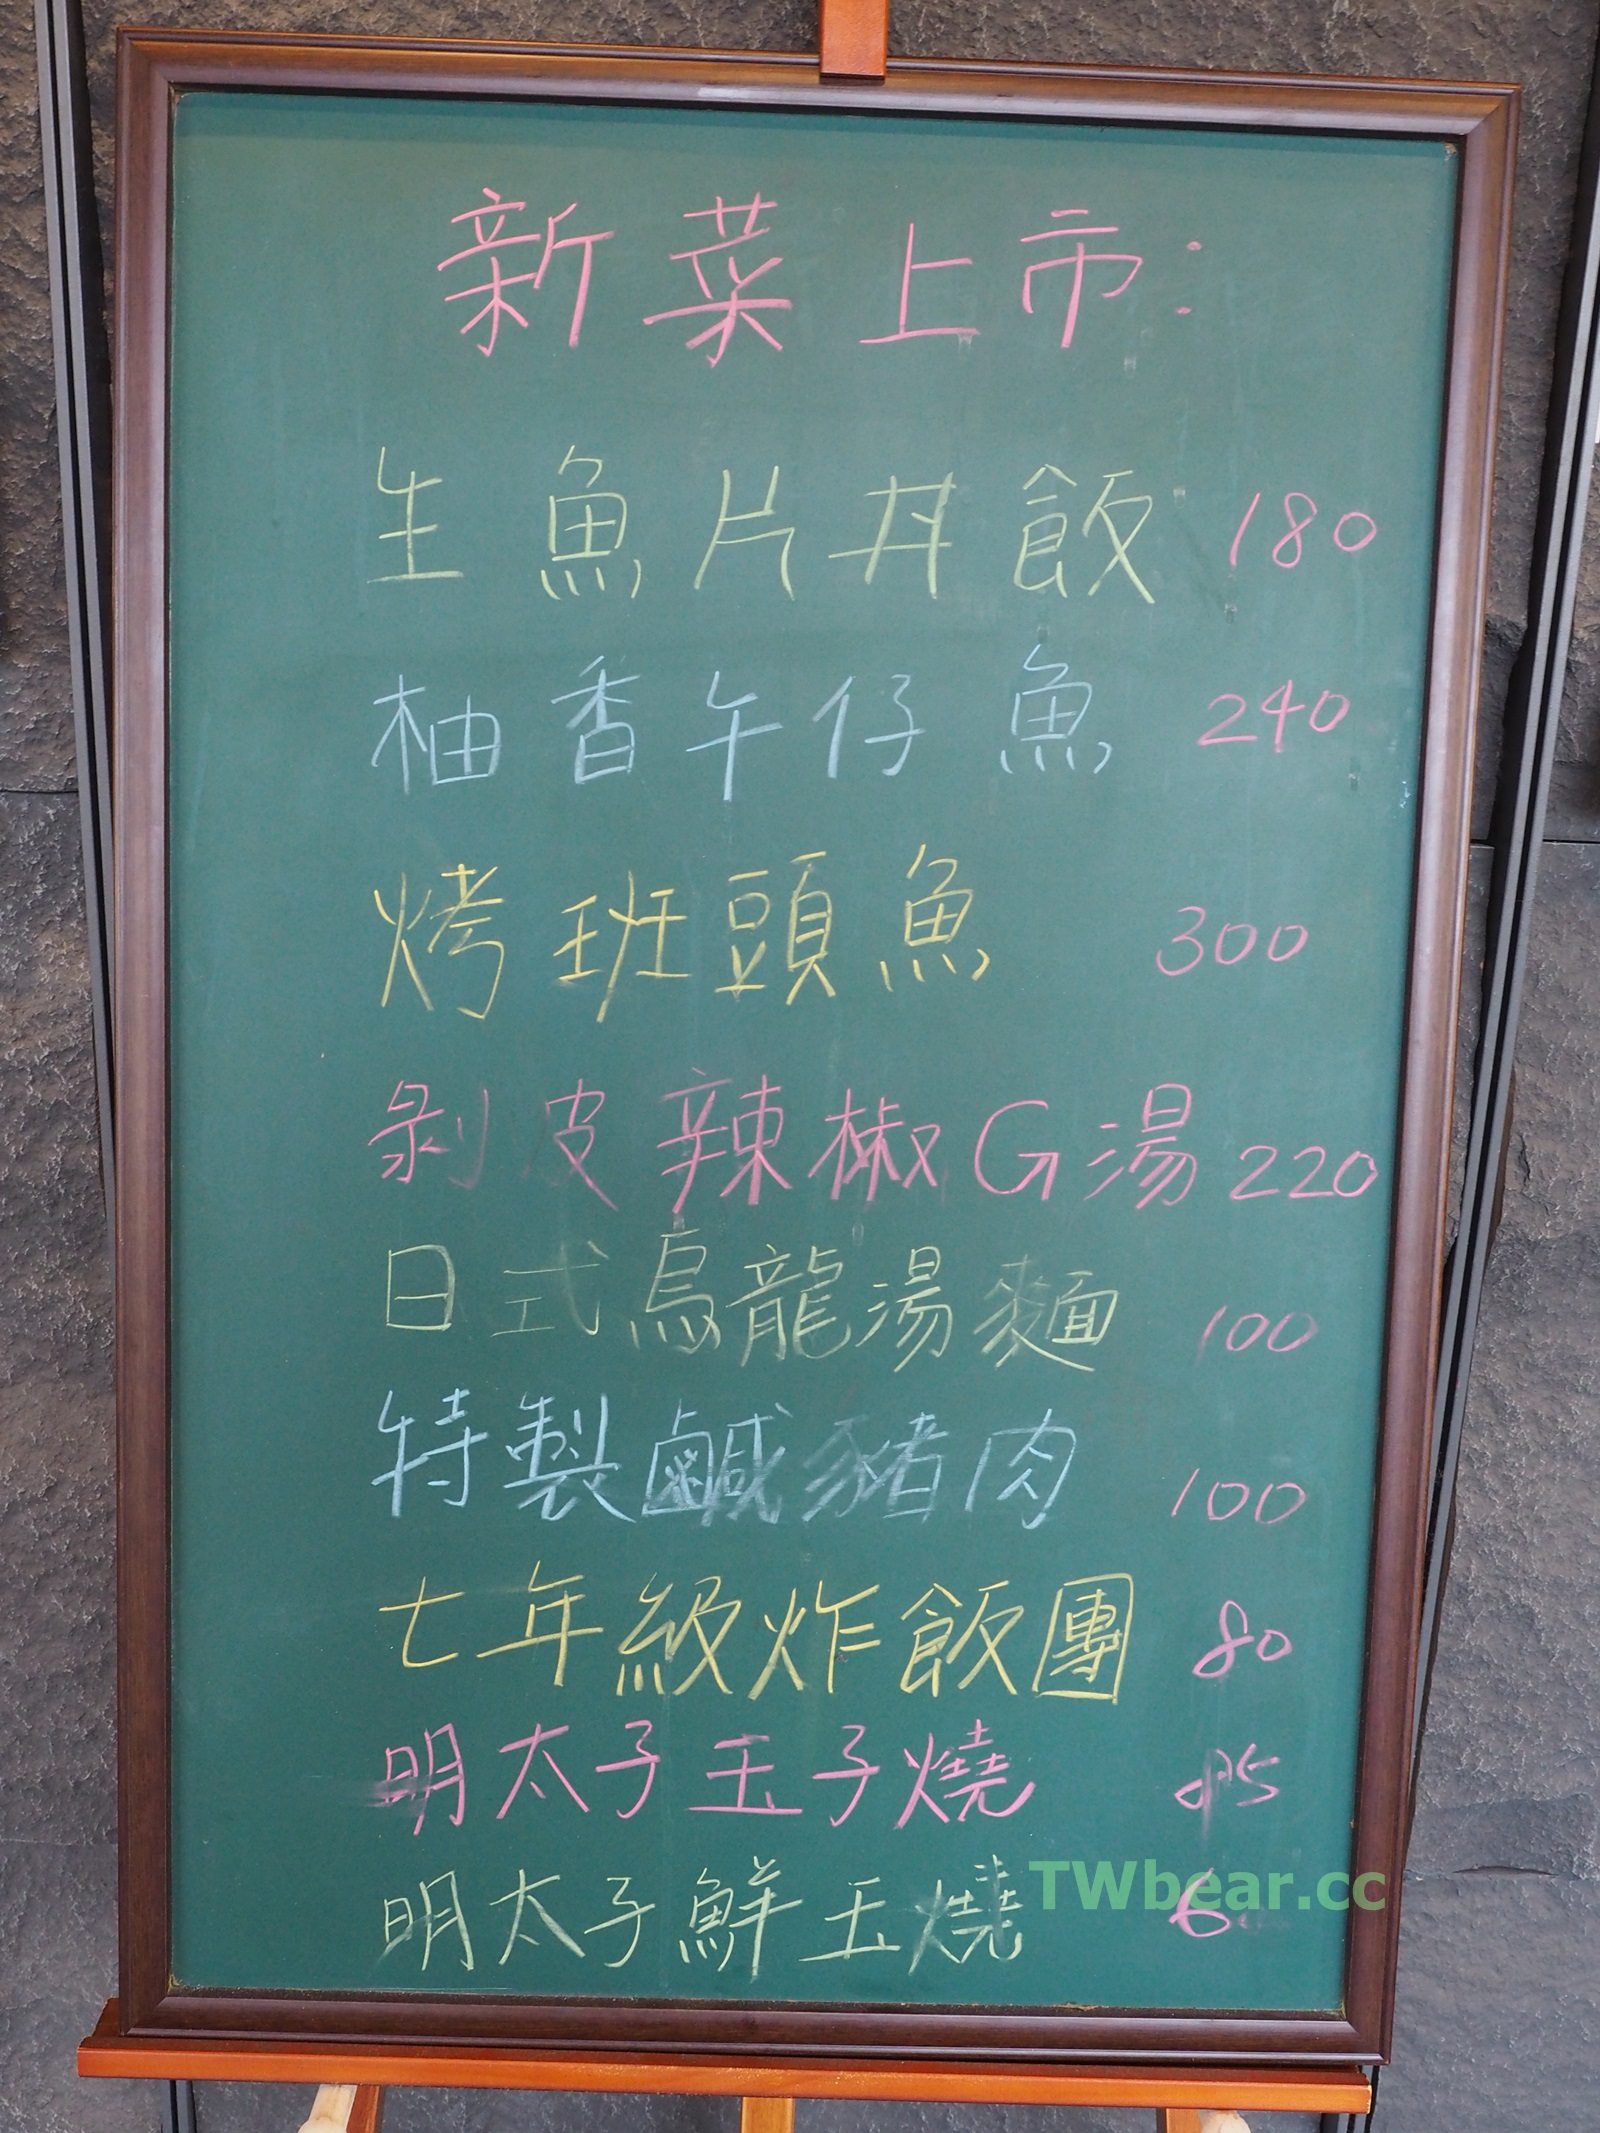 新菜上市:
生魚片丼飯 180
柚香午仔魚 240
烤班頭魚 300
剝皮辣椒G湯 220
日式烏龍湯麵 100
特製鹹豬肉 100
七年級炸飯團 80
明太子玉子燒
明太子鮮玉燒
TWbear.cc